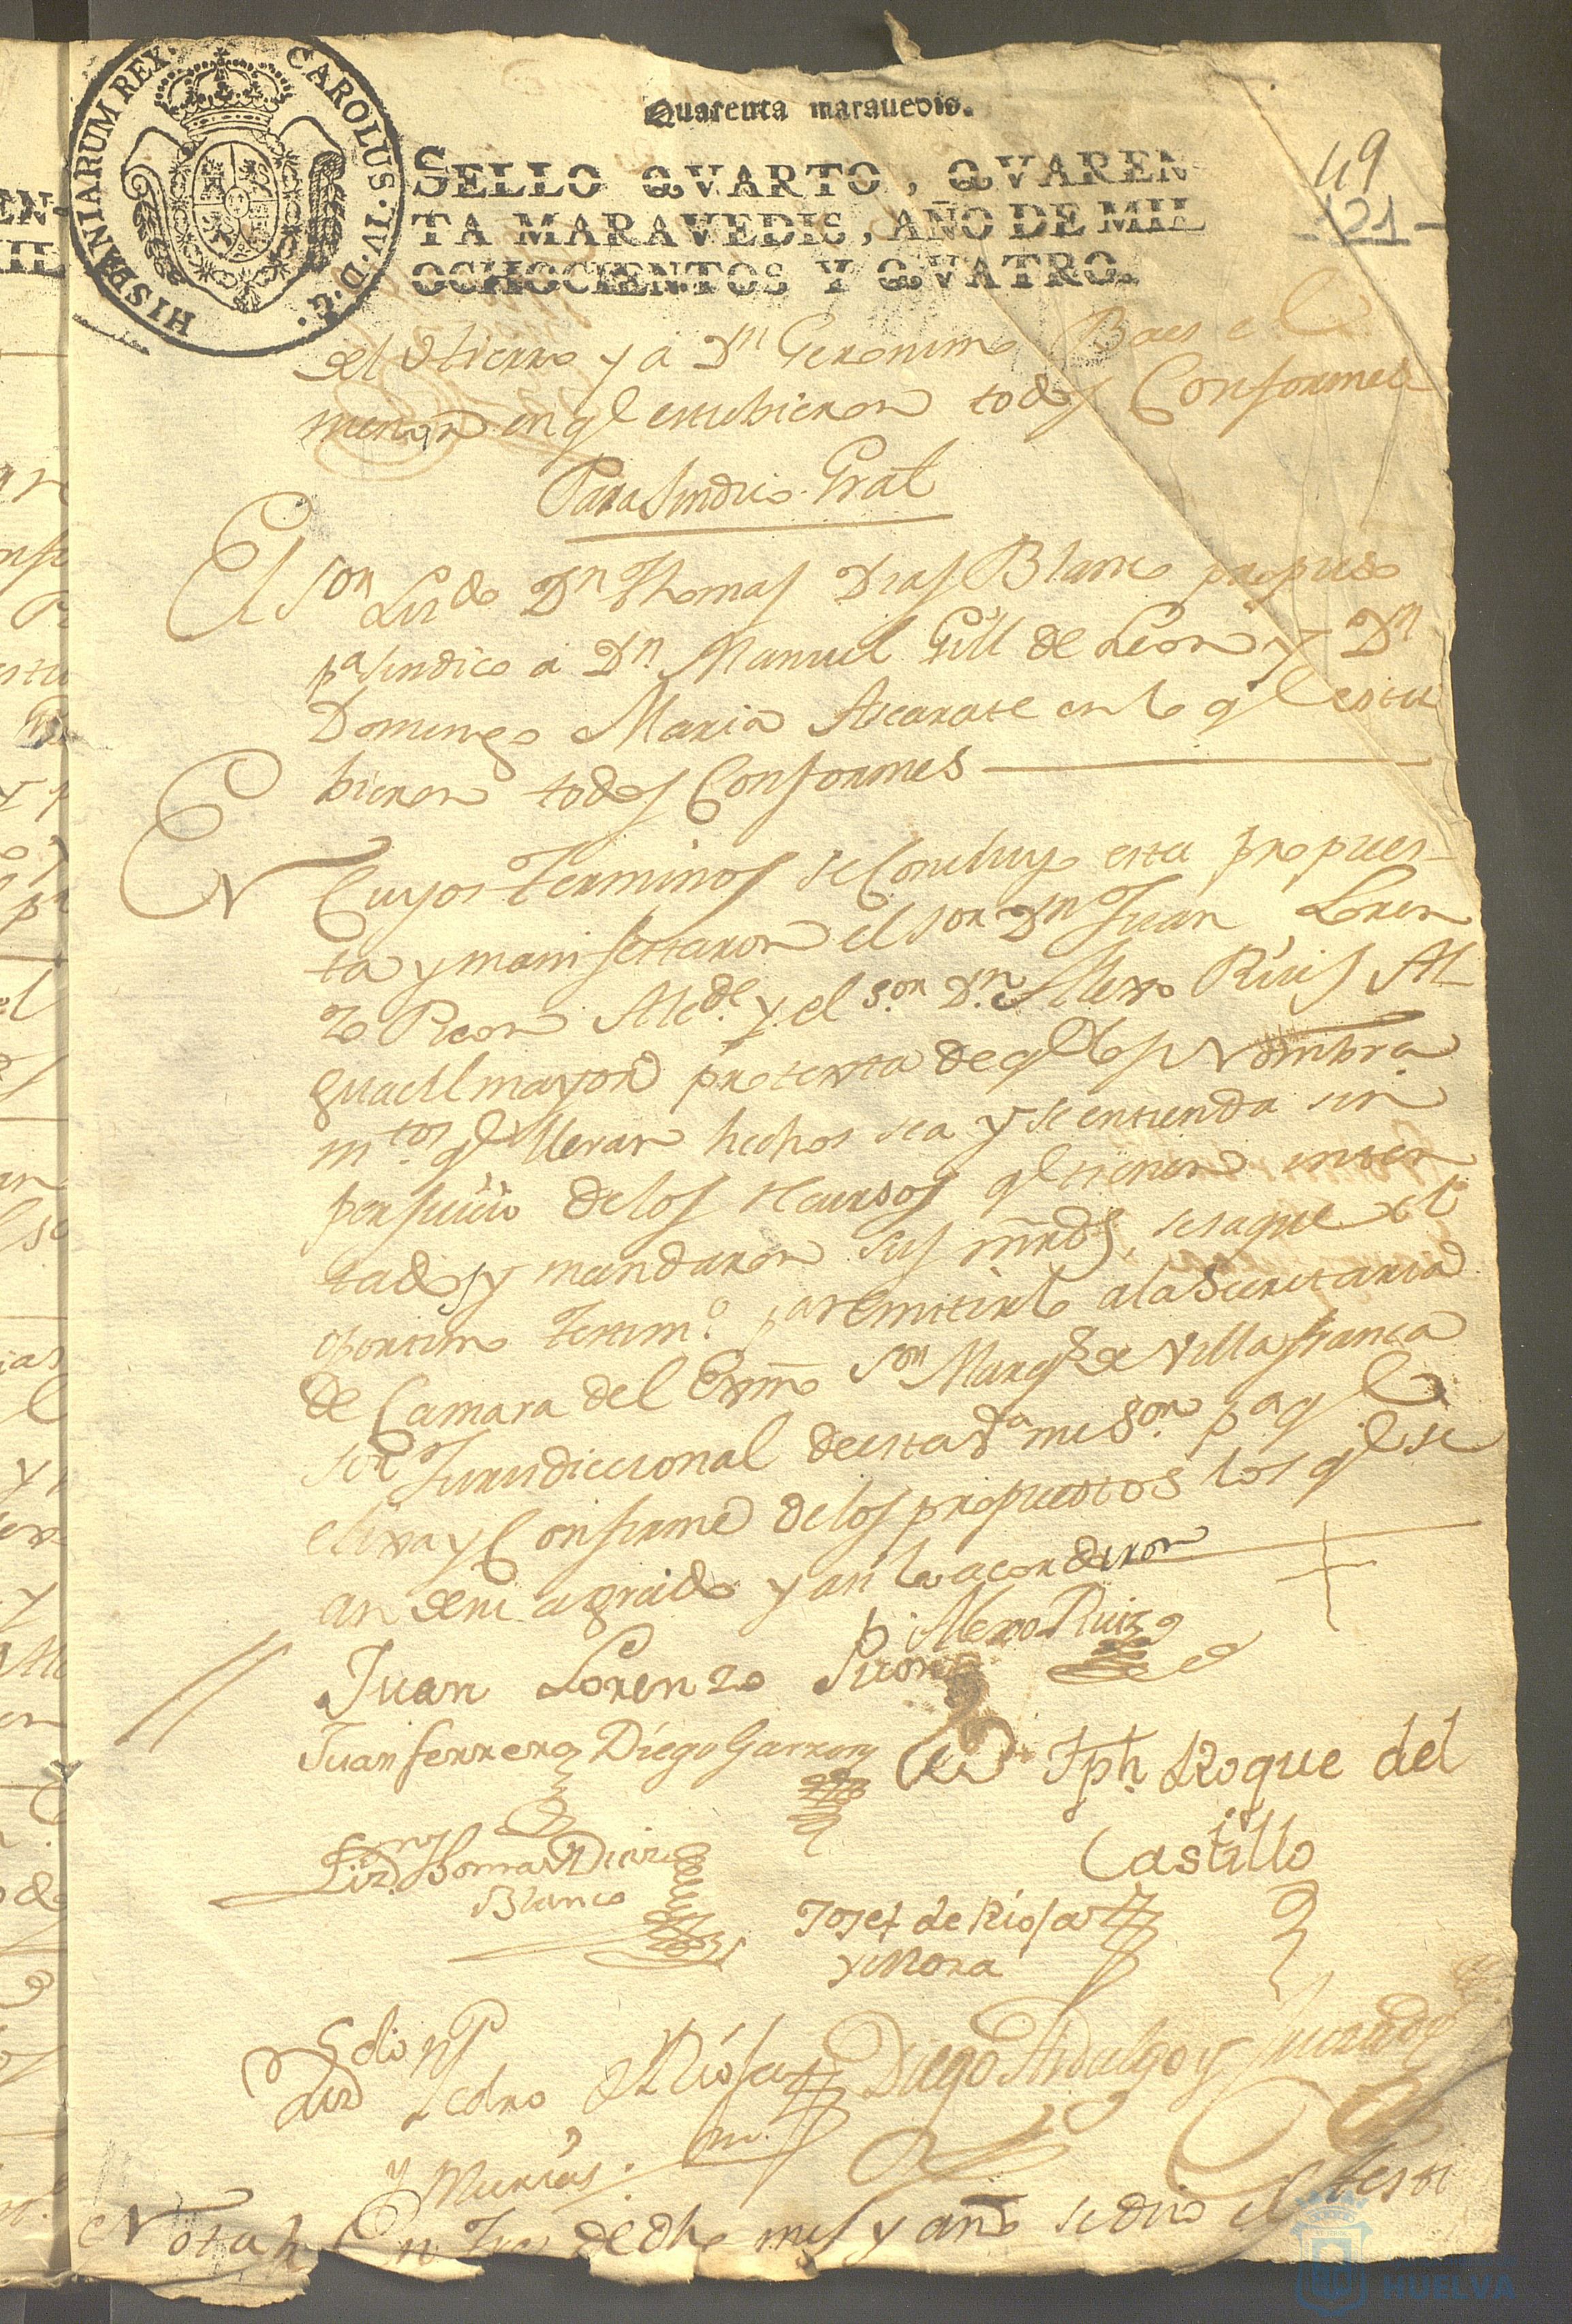 Quarenta maravedis.
SELLO QVARTO, QVAREN
TA MARAVEDIS, AÑO DE MIL
OCHOCIENTOS Y QVATRO.
CAROLUS. IV. D. G. HISPANIARUM REX.
49
121
del y a Dn Geronimo Baes el
menor en ql estubieron todos Conformes
Para Sindico Gral
El Sor Lizdo Dn Thomas Dias Blanco propuso
pa sindico a Dn Manuel Gill de Leon y Dn
Domingo Maria Ascarate en lo ql estu
bieron todos Conformes
En Cuyos terminos se Concluyo esta propues-
ta y manifestaron el sor Dn Juan Loren
zo Picon Alcde y el Sor Dn Alexo Ruis Al-
guacil mayor protexta de ql los Nombra
mtos ql llevan hechos sea y se entienda sin
perjuicio de los recursos ql tienen inten
tados y mandaron sus mrds, se saque el
oportuno testimo pa remitirlo a la Secretaria
de Camara del Exmo Sor Marqs de Villafranca
sor Jurisdiccional de esta Va mi Sor pa ql
elixa y Confirme de los propuestos los ql se
an de su agrado y asi lo acordaron
Alexo Ruiz
Juan Lorenzo Picon
Juan Ferrero Diego Garzon
Jph. Roque del
Castillo
Lizdo Thomas Diaz
Blanco
Josef de Rioja
y Mora
Lizdo Pedro de Rioja
Diego Hidalgo y
y Murias.
Nota En tres de dho mes y año se dio el testi
HUELVA